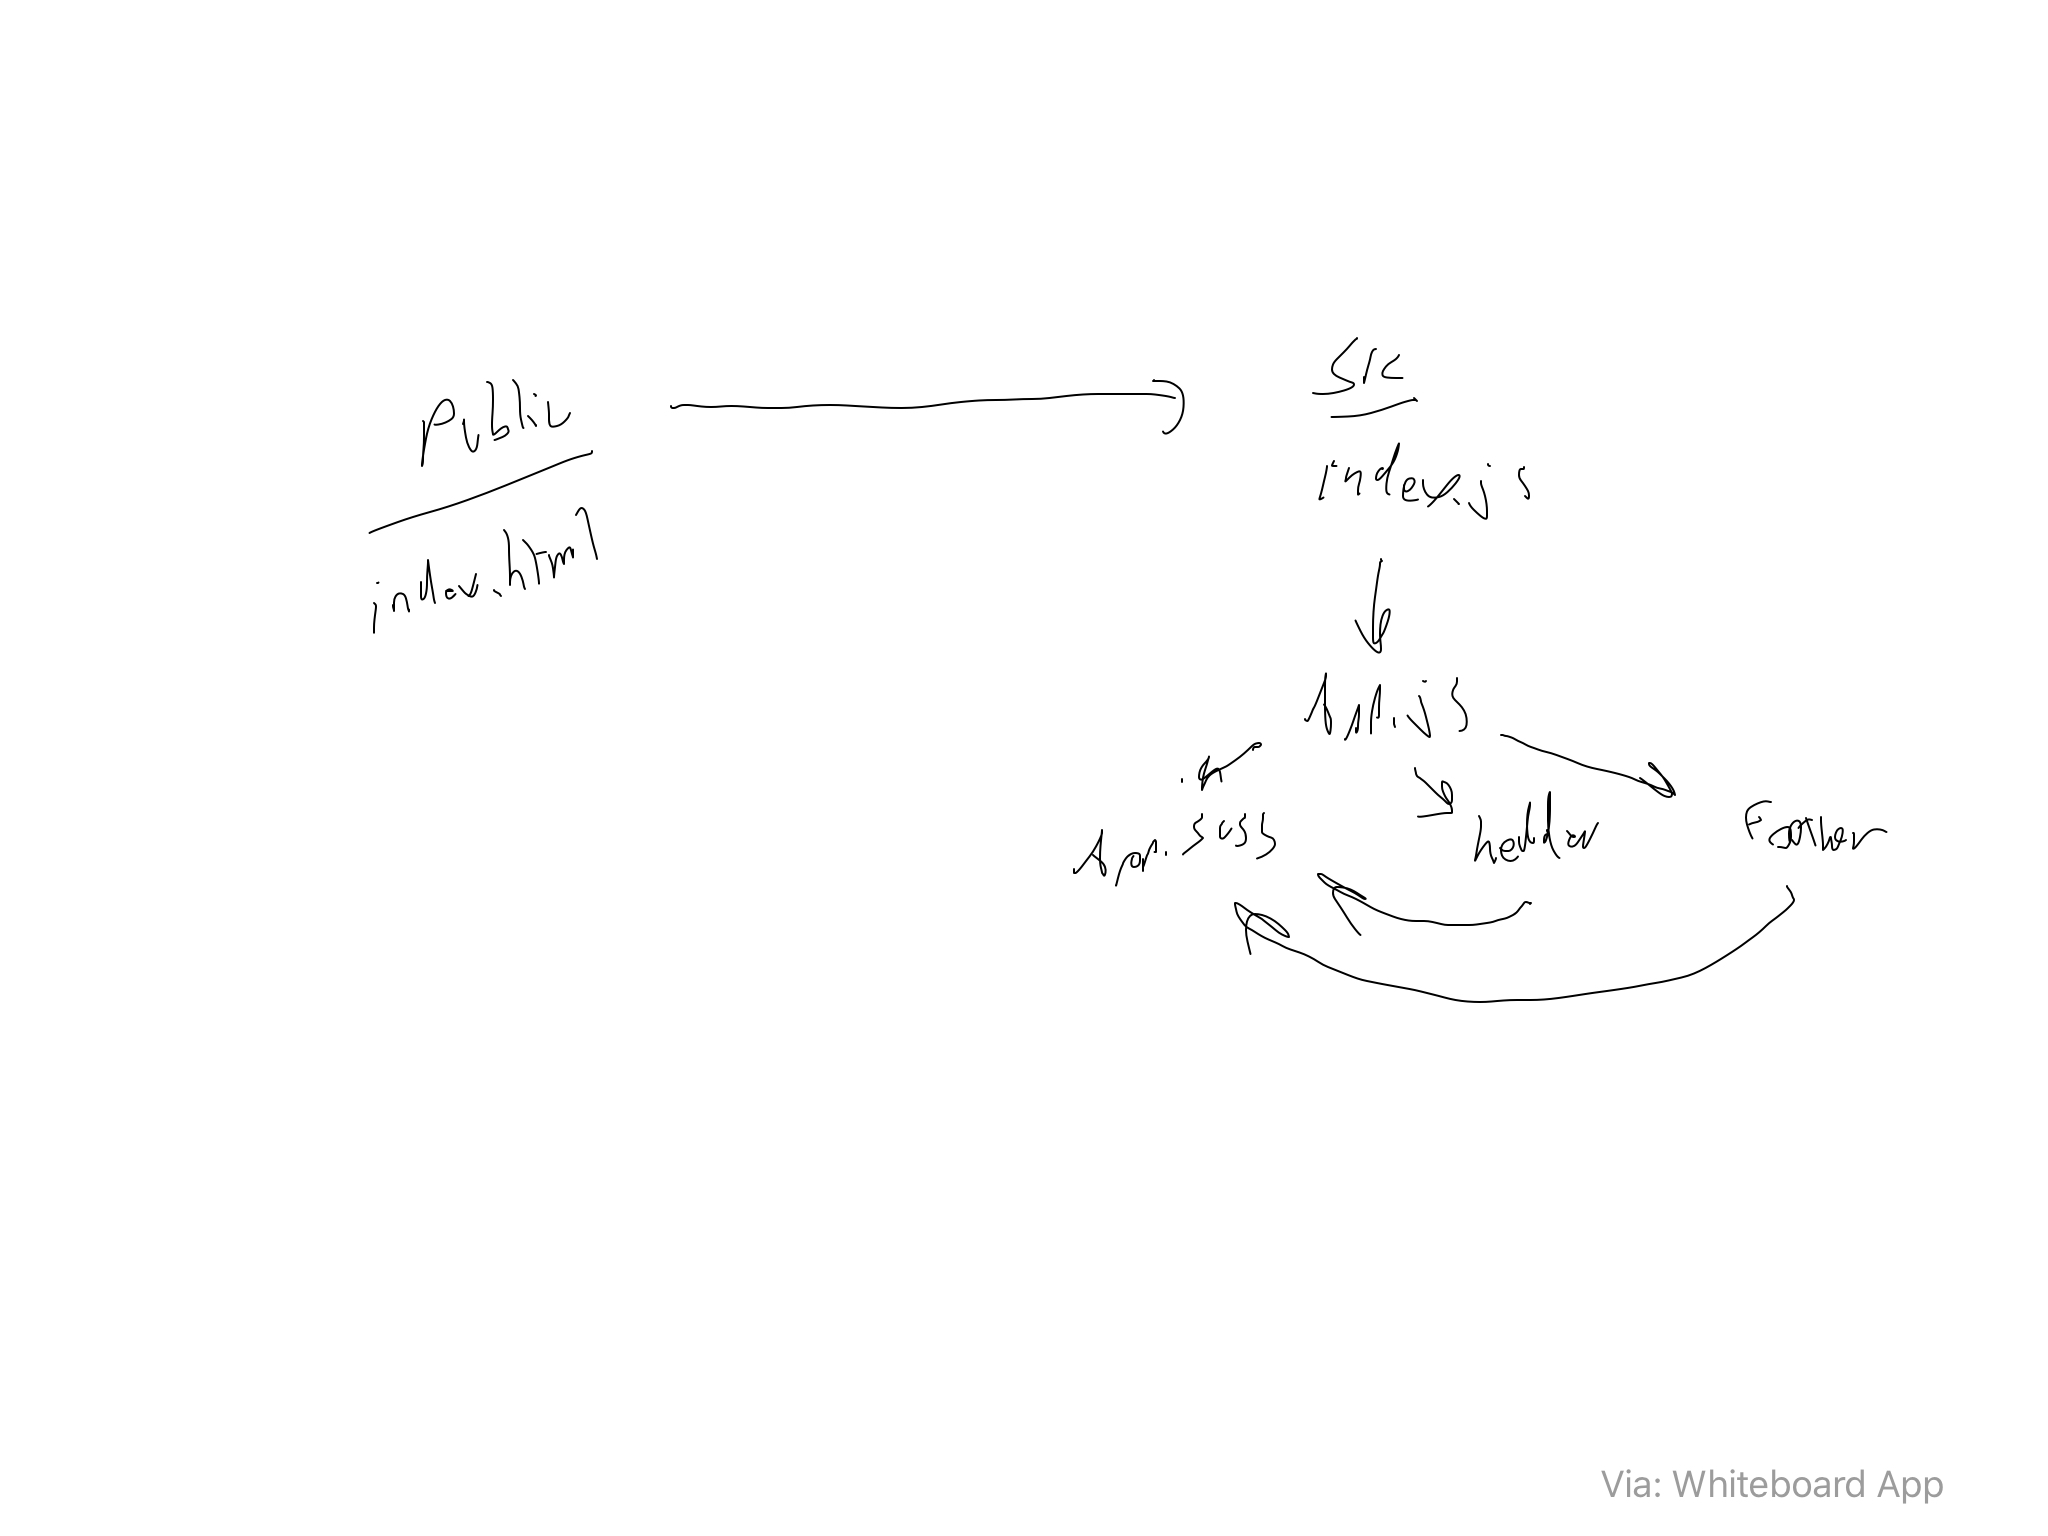 Public
index.html
src
index.js
App.js
App.scss
header
Footer
Via: Whiteboard App